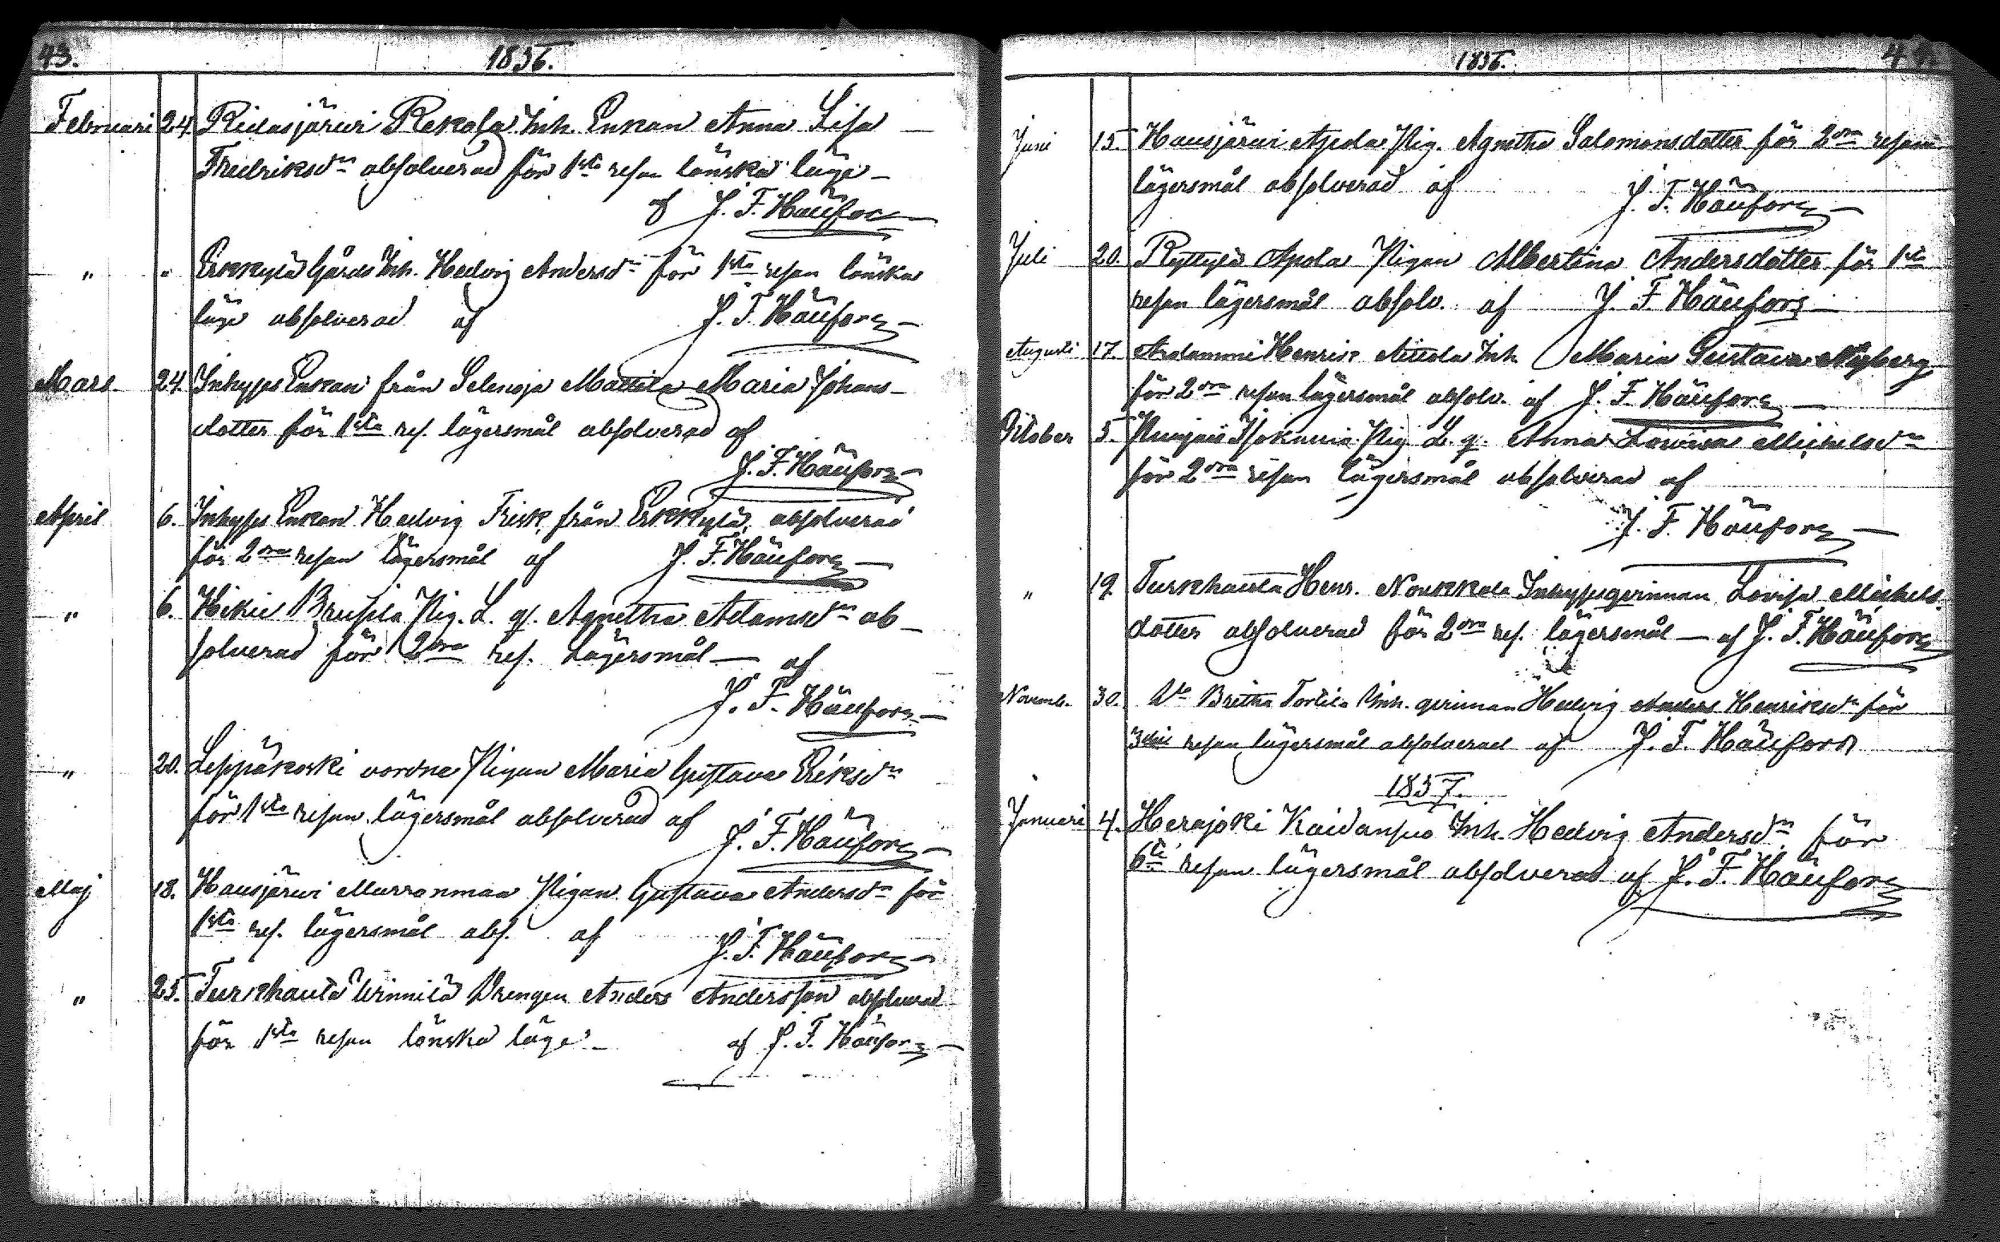 43.
1856.
Februari 24. Ridasjärwi Rekola Inh. Enkan Anna Lisa
Fredriksdr absolverad för 1sta resan lönska läge
af J. F. Häufors
" " Erkkylä Gårds Inh. Hedvig Andersdr för 1sta resan lönska
läge absolverad af J. F. Häufors
Mars 24. Inhyses Enkan från Selenoja Mattila Maria Johans-
dotter för 1sta res. lägersmål absolverad af
J. F. Häufors
April 6. Inhyses Enkan Hedvig Frisk från Erkkylä absolverad
för 2dra resan lägersmål af J. F. Häufors
" 6. Hikie Brusila Pig. L. q. Agnetha Adamsdr ab-
solverad för 2dra res. lägersmål af
J. F. Häufors
" 20. Leppäkoski Pigan Maria Gustava Eriksdr
för 1sta resan lägersmål absolverad af
J. F. Häufors
Maj 18. Hausjärwi Marranmaa Pigan Gustava Andersdr för
1sta res. lägersmål abs. af J. F. Häufors
" 25. Turkhauta Drengen Anders Andersson absolverad
för 1sta resan lönska läge af J. F. Häufors
1856.
Juni 15. Hausjärwi Apola Pig. Agnetha Salomonsdotter för 2dra resan
lägersmål absolverad af J. F. Häufors
Juli 20. Ryttylä Apola Pigan Albertina Andersdotter för 1sta
resan lägersmål absolv. af J. F. Häufors
Augusti 17. Henrik Inh. Maria Gustava Nyberg
för 2dra resan lägersmål absolv. af J. F. Häufors
Oktober 5. Pig. L. q. Anna Lovisa Michelsdr
för 2dra resan lägersmål absolverad af
J. F. Häufors
" 19. Turkhauta Henr. Noukkala Inhysesqvinnan Lovisa Michels-
dotter absolverad för 2dra res. lägersmål af J. F. Häufors
Novemb. 30. Britha Inh. qvinnan Hedvig Anders Henriksdr för
3die resan lägersmål absolverad af J. F. Häufors
1857.
Januari 4. Herajoki Kaidansuo Inh. Hedvig Andersdr för
6te resan lägersmål absolverad af J. F. Häufors